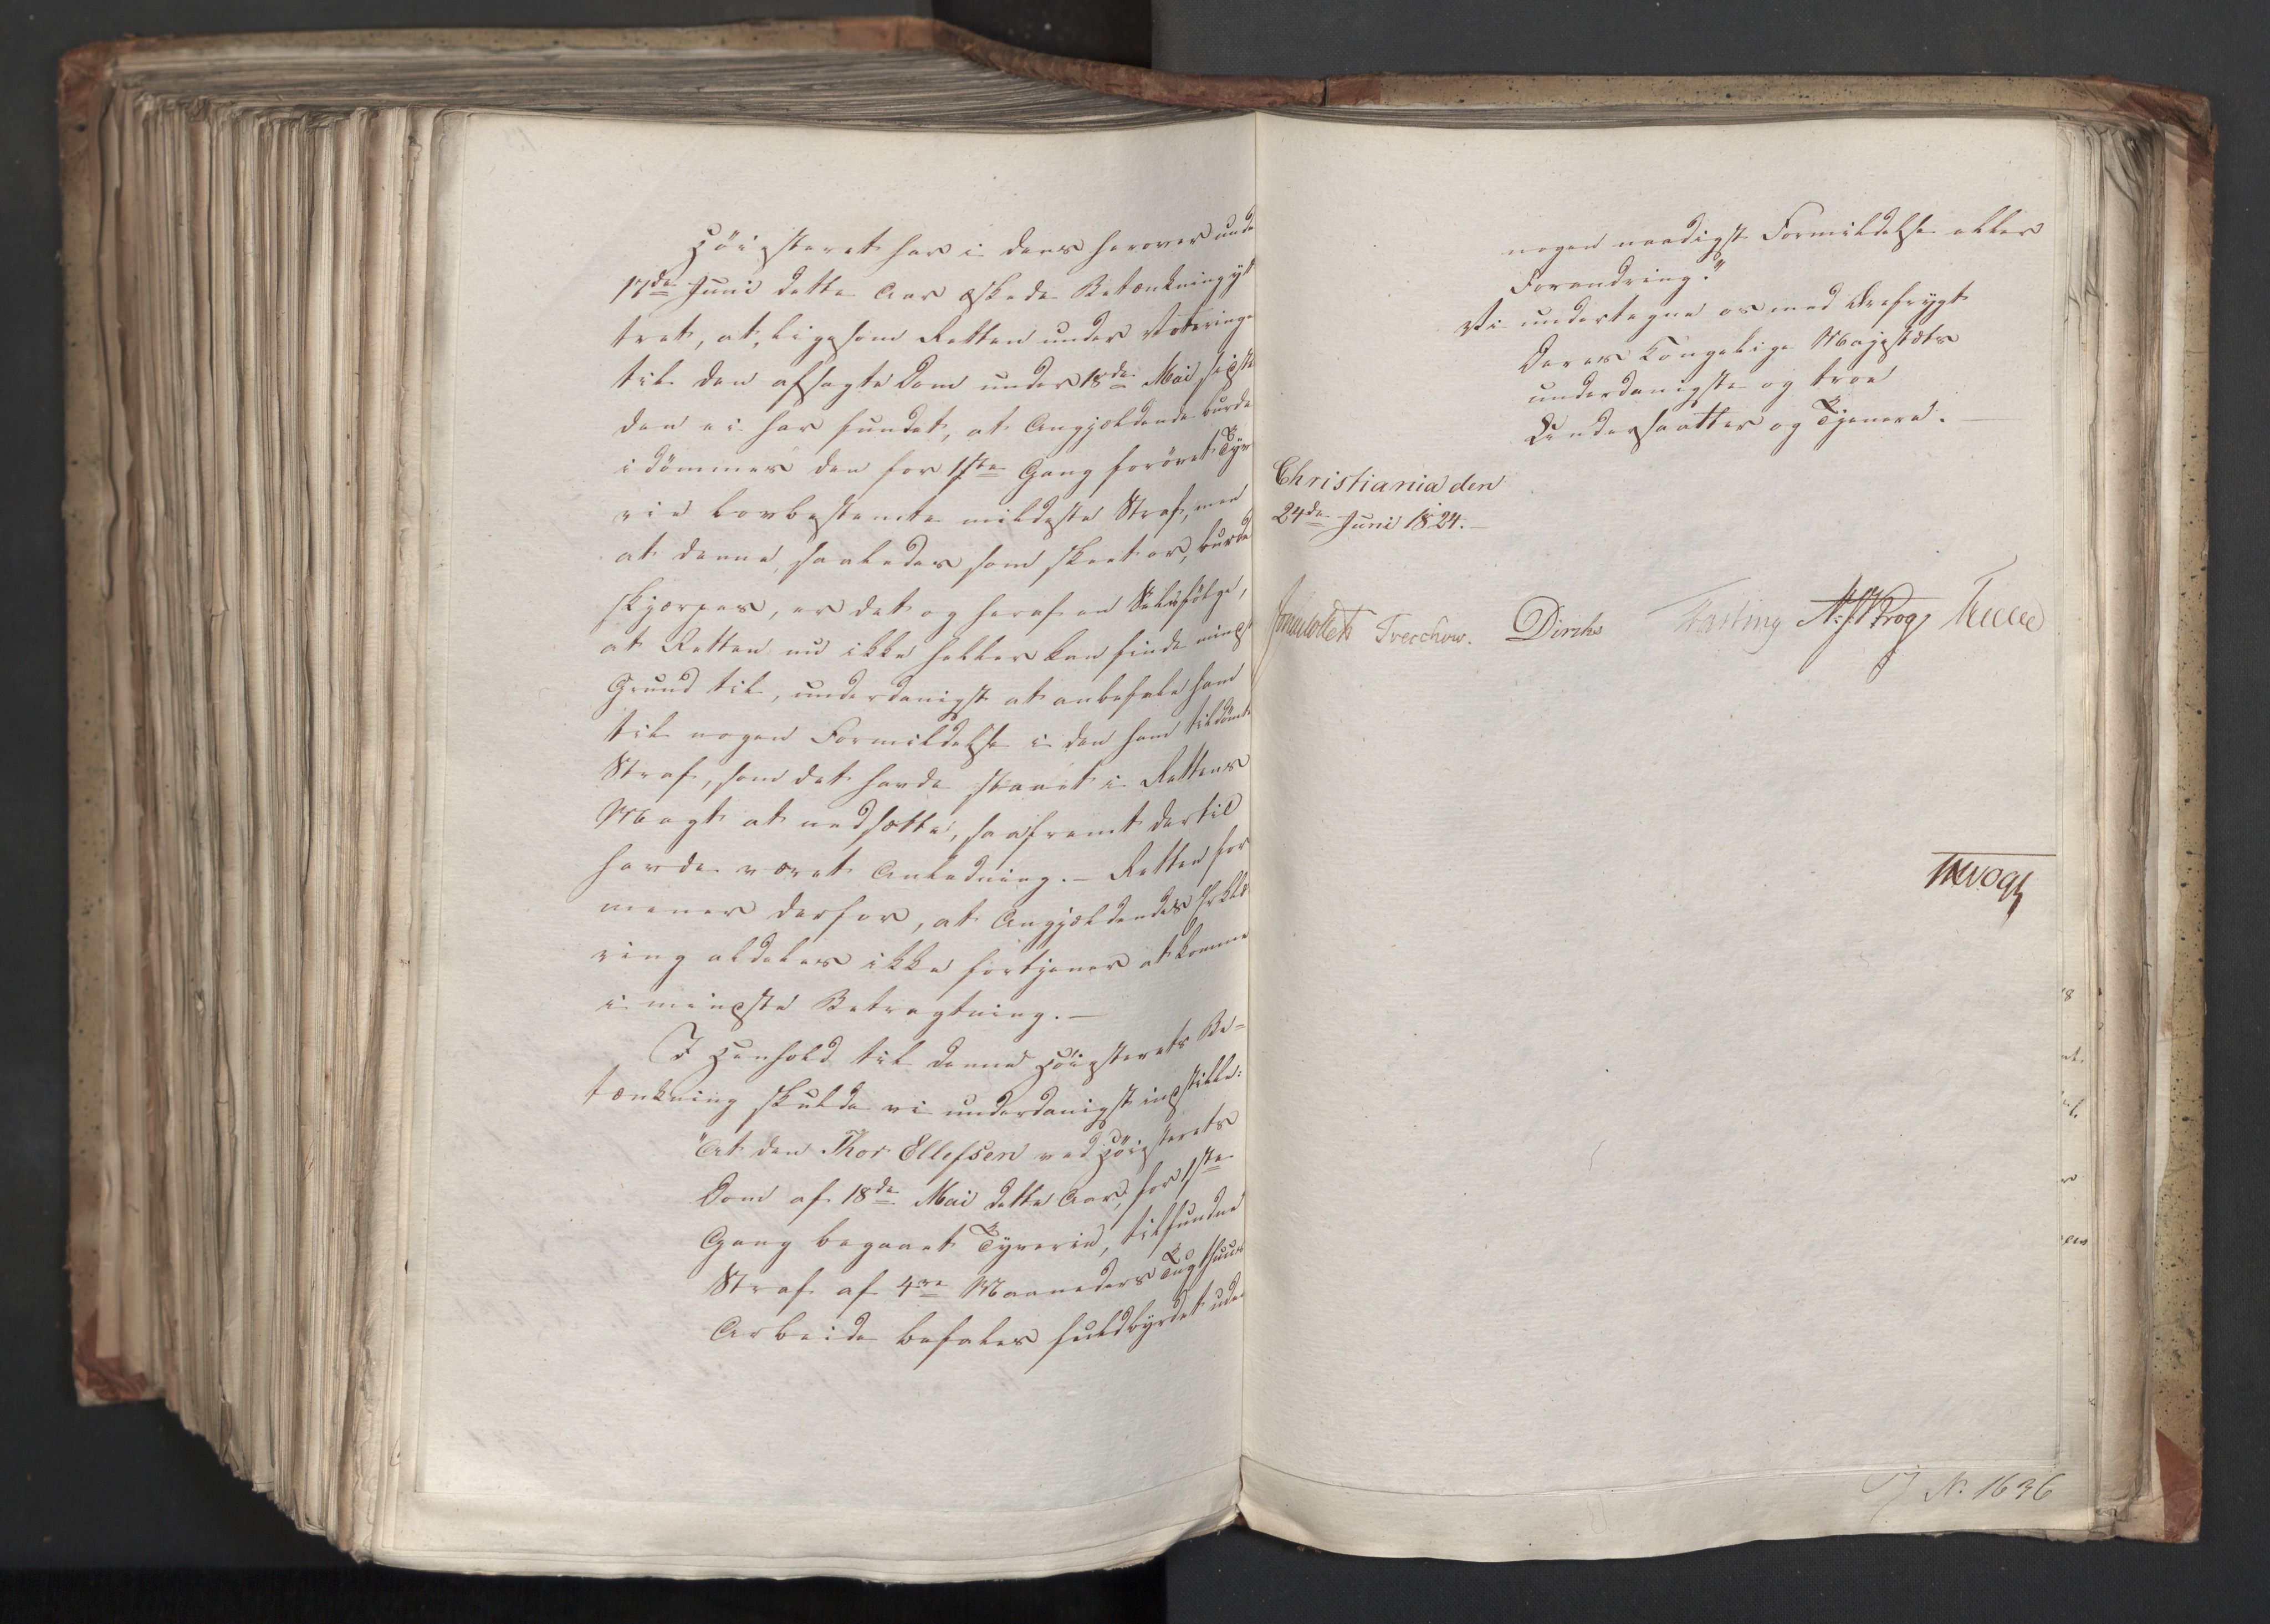 Höiesteret har i dens herover unde
17de Juni dette Aar æskede Betænkning yt
tret, at, ligesom Retten under Votering
til den afsagte Dom under 18de Mai sidst
den ei har fundet, at Angjældende burde
idømmes den for 1ste Gang forövet Tyv
rie lovbestemte mildeste Straf, men
at denne, saaledes som skeet er, burde
skjærpes, er det og heraf en Selvfölge,
at Retten nu ikke heller kan finde mindst
Grund til, underdanigst at anbefale ham
til nogen Formildelse i den ham tildömte
Straf, som det havde staaet i Rettens
Magt at nedsætte, saafremt dertil
havde været Anledning. – Retten for
mener derfor, at Angjældendes Erklæ
ring aldeles ikke fortjener at komme
i mindste Betragtning. –
I Henhold til denne Höiesterets Be-
tænkning skulde vi underdanigst indstille:
"At den Thor Ellefsen ved Höiesterets
Dom af 18de Mai dette Aar, for 1ste
Gang begaaet Tyverie, tilfundne
Straf af 4re Maaneders Tugthuus
Arbeide befales fuldbyrdet uden
nogen naadigst Formildelse eller
Forandring."
Vi undertegne os med Ærefrygt
Deres Kongelige Majestæts
underdanigste og troe
Undersaatter og Tjenere. –
Christiania den
24de Juni 1824. –
Jonas Collett Treschow. Diriks Fasting N: J: Krog
JHVogt
N. 1636